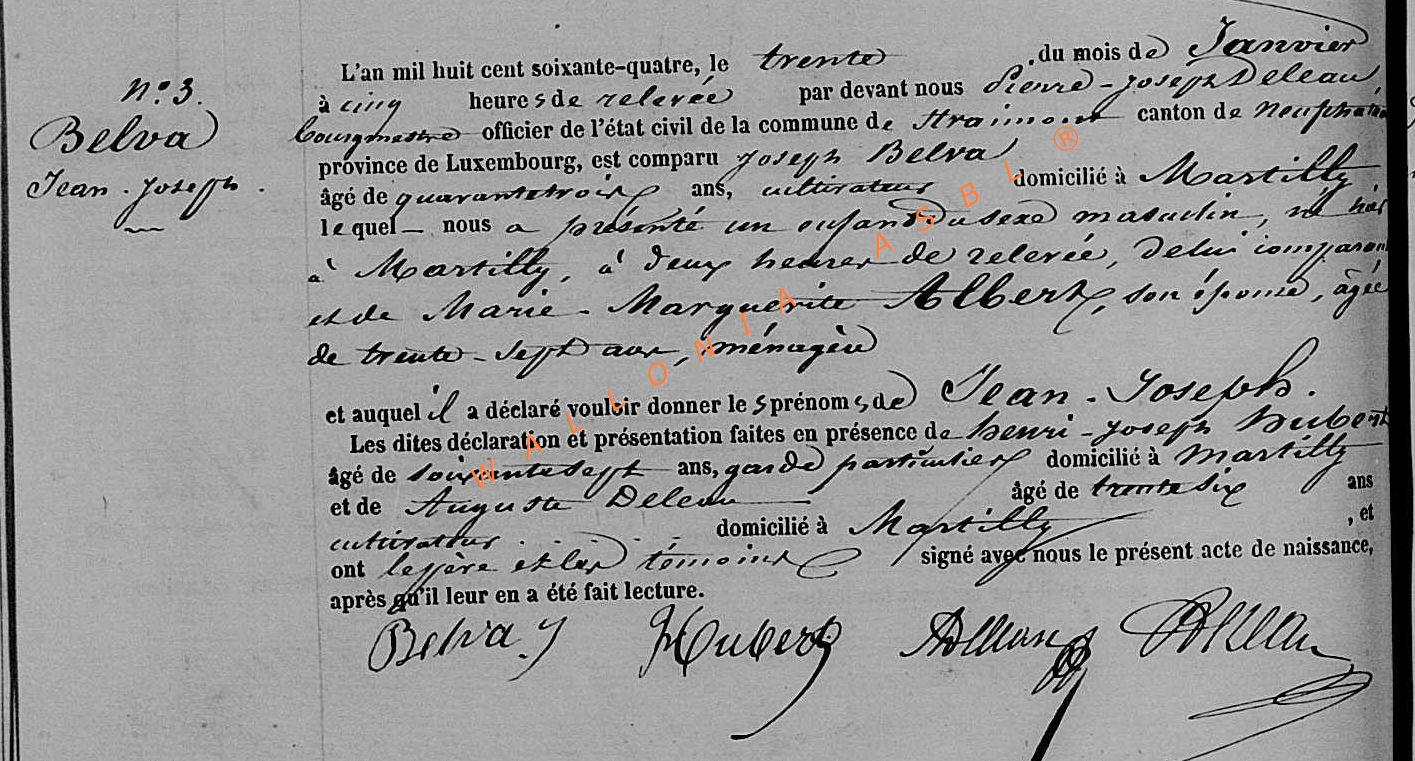 n.o 3.
Belva
Jean-Joseph.
L'an mil huit cent soixante-quatre, le trente du mois de Janvier
à cinq heures de relevée par devant nous Pierre-Joseph Deleau
bourgmestre officier de l'état civil de la commune de Straimont canton de neufchateau
province de Luxembourg, est comparu Joseph Belva
âgé de quarantetrois ans, cultivateur domicilié à Martilly
lequel nous a présenté un enfant du sexe masculin, né hier
à Martilly, à deux heures de relevée, de lui comparant
et de Marie-Marguerite Albert, son épouse, âgée
de trente-sept ans, ménagère
et auquel il a déclaré vouloir donner les prénoms de Jean-Joseph.
Les dites déclaration et présentation faites en présence de henri-joseph hubert
âgé de soixantesept ans, garde particulier domicilié à Martilly
et de Auguste Deleau âgé de trentesix ans
cultivateur domicilié à Martilly, et
ont le père et les témoins signé avec nous le présent acte de naissance,
après qu'il leur en a été fait lecture.
Belva J Hubert ADeleau
WALLONIA ASBL ®